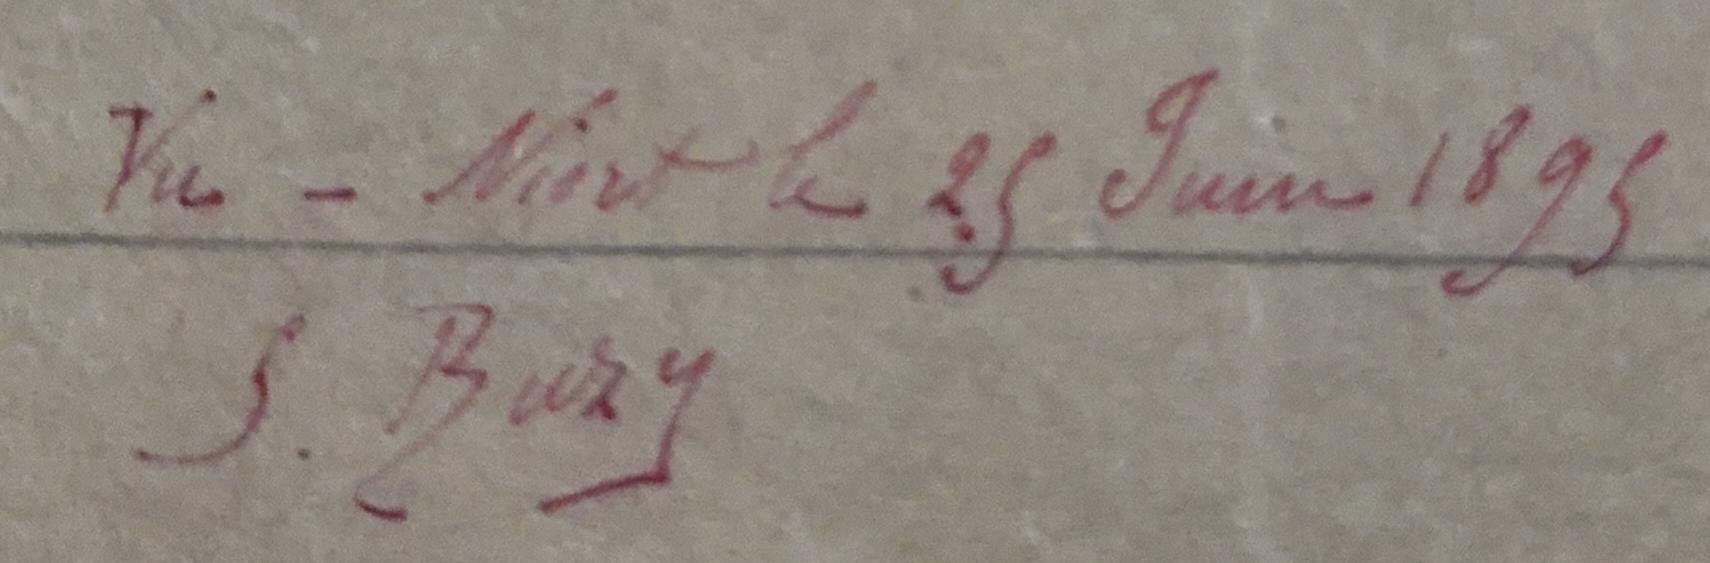 Vu - Niort le 25 Juin 1895
S. Buzy